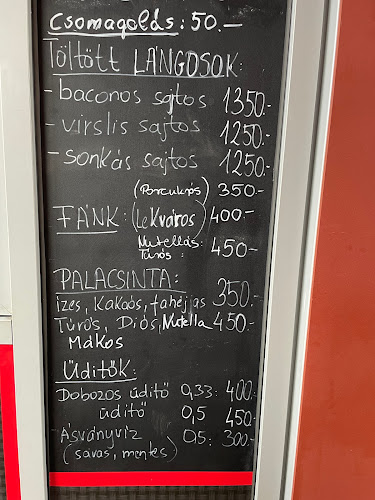 Csomagolás: 50.-
Töltött LÁNGOSOK:
- baconos sajtos 1350.-
- virslis sajtos 1250.-
- sonkás sajtos 1250.-
(Porcukros) 350.-
FÁNK: (Lekváros) 400.-
Nutellás: 450.-
Túrós:
PALACSINTA:
ízes, kakaós, fahéjas 350.-
Túrós, Diós, Nutella 450.-
Mákos
Üdítők:
Dobozos üdítő 0,33: 400.-
üdítő 0,5 450.-
- Ásványvíz 05: 300.-
(savas, mentes)